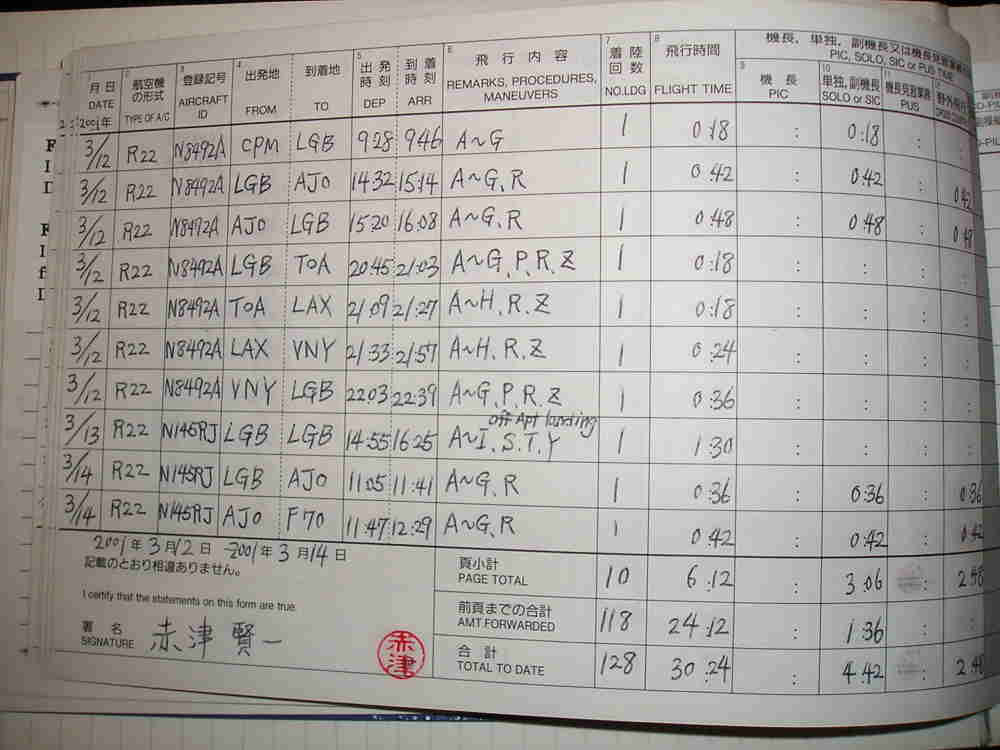 機長, 単独, 副機長又は機長見習業務
PIC, SOLO, SIC or PUS TIME
1 月日 DATE 2 航空機の形式 TYPE OF A/C 3 登録記号 AIRCRAFT ID 4 出発地 FROM 到着地 TO 5 出発時刻 DEP 到着時刻 ARR 6 飛行内容 REMARKS, PROCEDURES, MANEUVERS 7 着陸回数 NO.LDG 8 飛行時間 FLIGHT TIME 9 機長 PIC 10 単独, 副機長 SOLO or SIC 11 機長見習業務 PUS 野外飛行
2001年
3/12 R22 N8492A CPM LGB 9:28 9:46 A~G 1 0:18 : 0:18 :
3/12 R22 N8492A LGB AJO 14:32 15:14 A~G, R 1 0:42 : 0:42 : 0:42
3/12 R22 N8492A AJO LGB 15:20 16:08 A~G, R 1 0:48 : 0:48 : 0:48
3/12 R22 N8492A LGB TOA 20:45 21:03 A~G, P, R, Z 1 0:18 : : :
3/12 R22 N8492A TOA LAX 21:09 21:27 A~H, R, Z 1 0:18 : : :
3/12 R22 N8492A LAX VNY 21:33 21:57 A~H, R, Z 1 0:24 : : :
3/12 R22 N8492A VNY LGB 22:03 22:39 A~G, P, R, Z 1 0:36 : : :
off Apt landing
3/13 R22 N145RJ LGB LGB 14:55 16:25 A~I, S, T, Y 1 1:30 : : :
3/14 R22 N145RJ LGB AJO 11:05 11:41 A~G, R 1 0:36 : 0:36 : 0:36
3/14 R22 N145RJ AJO F70 11:47 12:29 A~G, R 1 0:42 : 0:42 : 0:42
2001年3月12日 ~2001年3月14日
記載のとおり相違ありません。
I certify that the statements on this form are true.
署名 SIGNATURE 赤津賢一
赤津
頁小計 PAGE TOTAL 10 6:12 : 3:06 : 2:48
前頁までの合計 AMT.FORWARDED 118 24:12 : 1:36 :
合計 TOTAL TO DATE 128 30:24 : 4:42 : 2:48